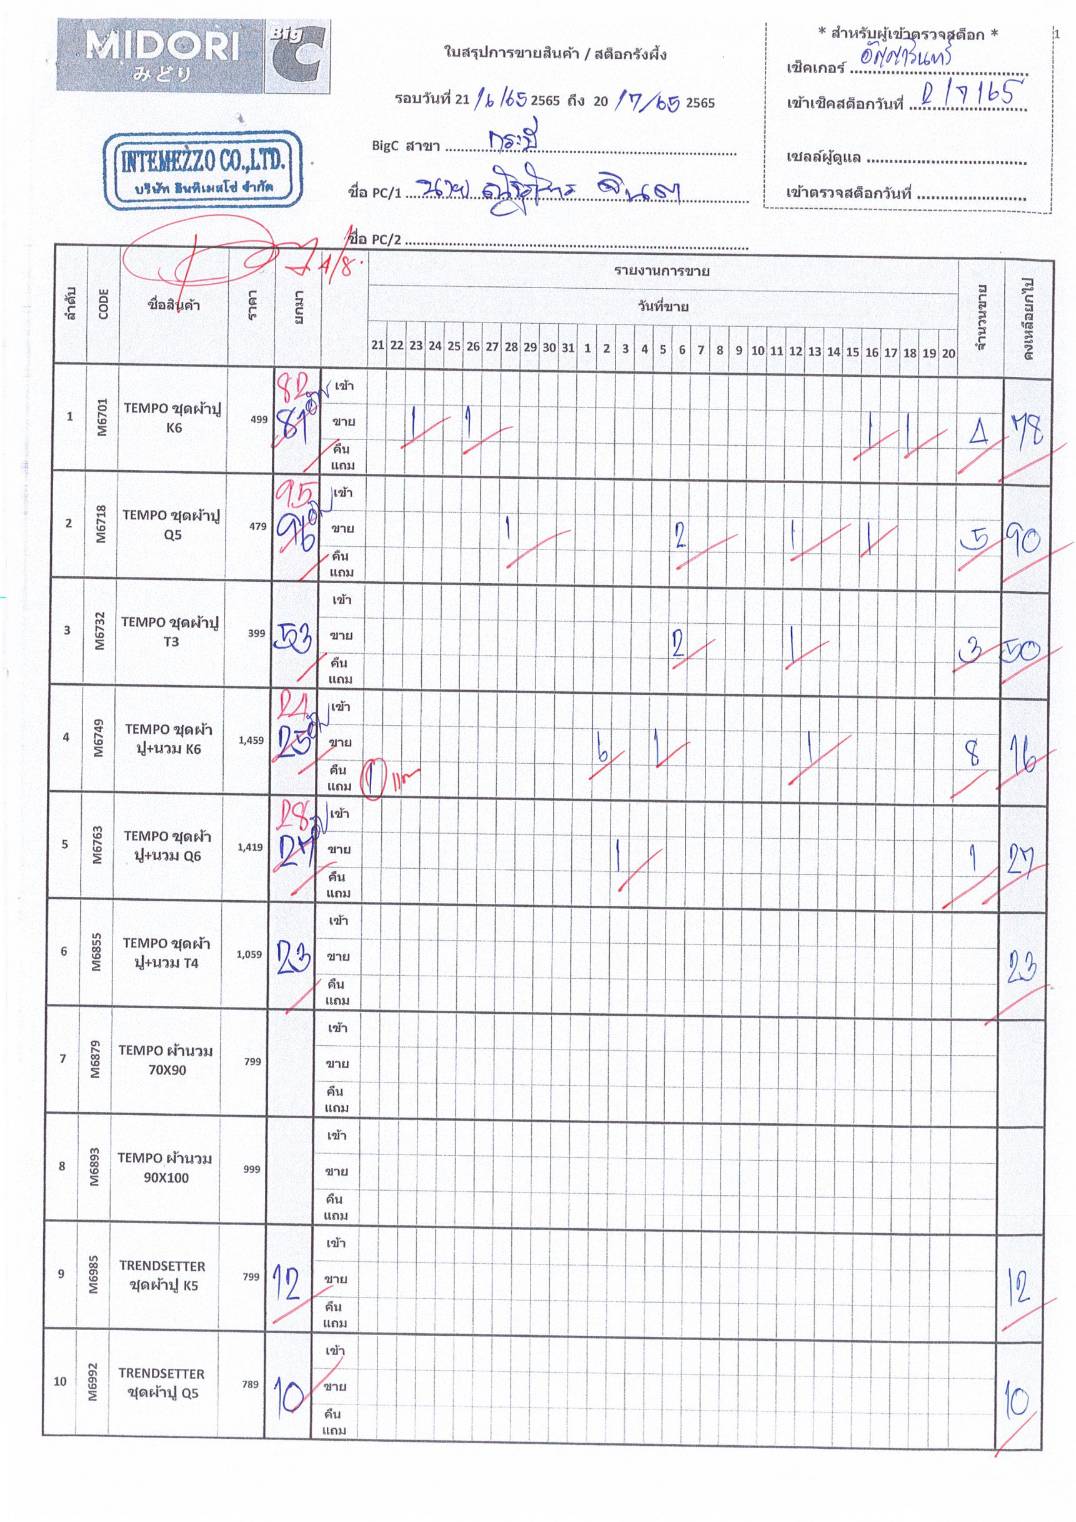 MIDORI
みどり
Big C
ใบสรุปการขายสินค้า / สต๊อกรังผึ้ง
รอบวันที่ 21 /6/65 2565 ถึง 20 /7/65 2565
BigC สาขา กระบี่
ชื่อ PC/1 นาย
ชื่อ PC/2
INTEMEZZO CO.,LTD.
บริษัท อินทิเมสโซ่ จำกัด
* สำหรับผู้เข้าตรวจสต๊อก *
1
เช็คเกอร์
เข้าเช็คสต๊อกวันที่ 2/7/65
เซลล์ผู้ดูแล
เข้าตรวจสต๊อกวันที่
4/8.
ลำดับ CODE ชื่อสินค้า ราคา ยกมา รายงานการขาย จำนวนขาย คงเหลือยกไป
วันที่ขาย
21 22 23 24 25 26 27 28 29 30 31 1 2 3 4 5 6 7 8 9 10 11 12 13 14 15 16 17 18 19 20
1 M6701 TEMPO ชุดผ้าปู K6 499 82 81 เข้า
ขาย 1 1 1 1 4 78
คืน
แถม
2 M6718 TEMPO ชุดผ้าปู Q5 479 95 96 เข้า
ขาย 1 2 1 1 5 90
คืน
แถม
3 M6732 TEMPO ชุดผ้าปู T3 399 53 เข้า
ขาย 2 1 3 50
คืน
แถม
4 M6749 TEMPO ชุดผ้าปู+นวม K6 1,459 24 25 เข้า
ขาย 6 1 1 8 16
คืน
แถม 1 แถม
5 M6763 TEMPO ชุดผ้าปู+นวม Q6 1,419 28 27 เข้า
ขาย 1 1 27
คืน
แถม
6 M6855 TEMPO ชุดผ้าปู+นวม T4 1,059 23 เข้า
ขาย 23
คืน
แถม
7 M6879 TEMPO ผ้านวม 70X90 799 เข้า
ขาย
คืน
แถม
8 M6893 TEMPO ผ้านวม 90X100 999 เข้า
ขาย
คืน
แถม
9 M6985 TRENDSETTER ชุดผ้าปู K5 799 12 เข้า
ขาย 12
คืน
แถม
10 M6992 TRENDSETTER ชุดผ้าปู Q5 789 10 เข้า
ขาย 10
คืน
แถม